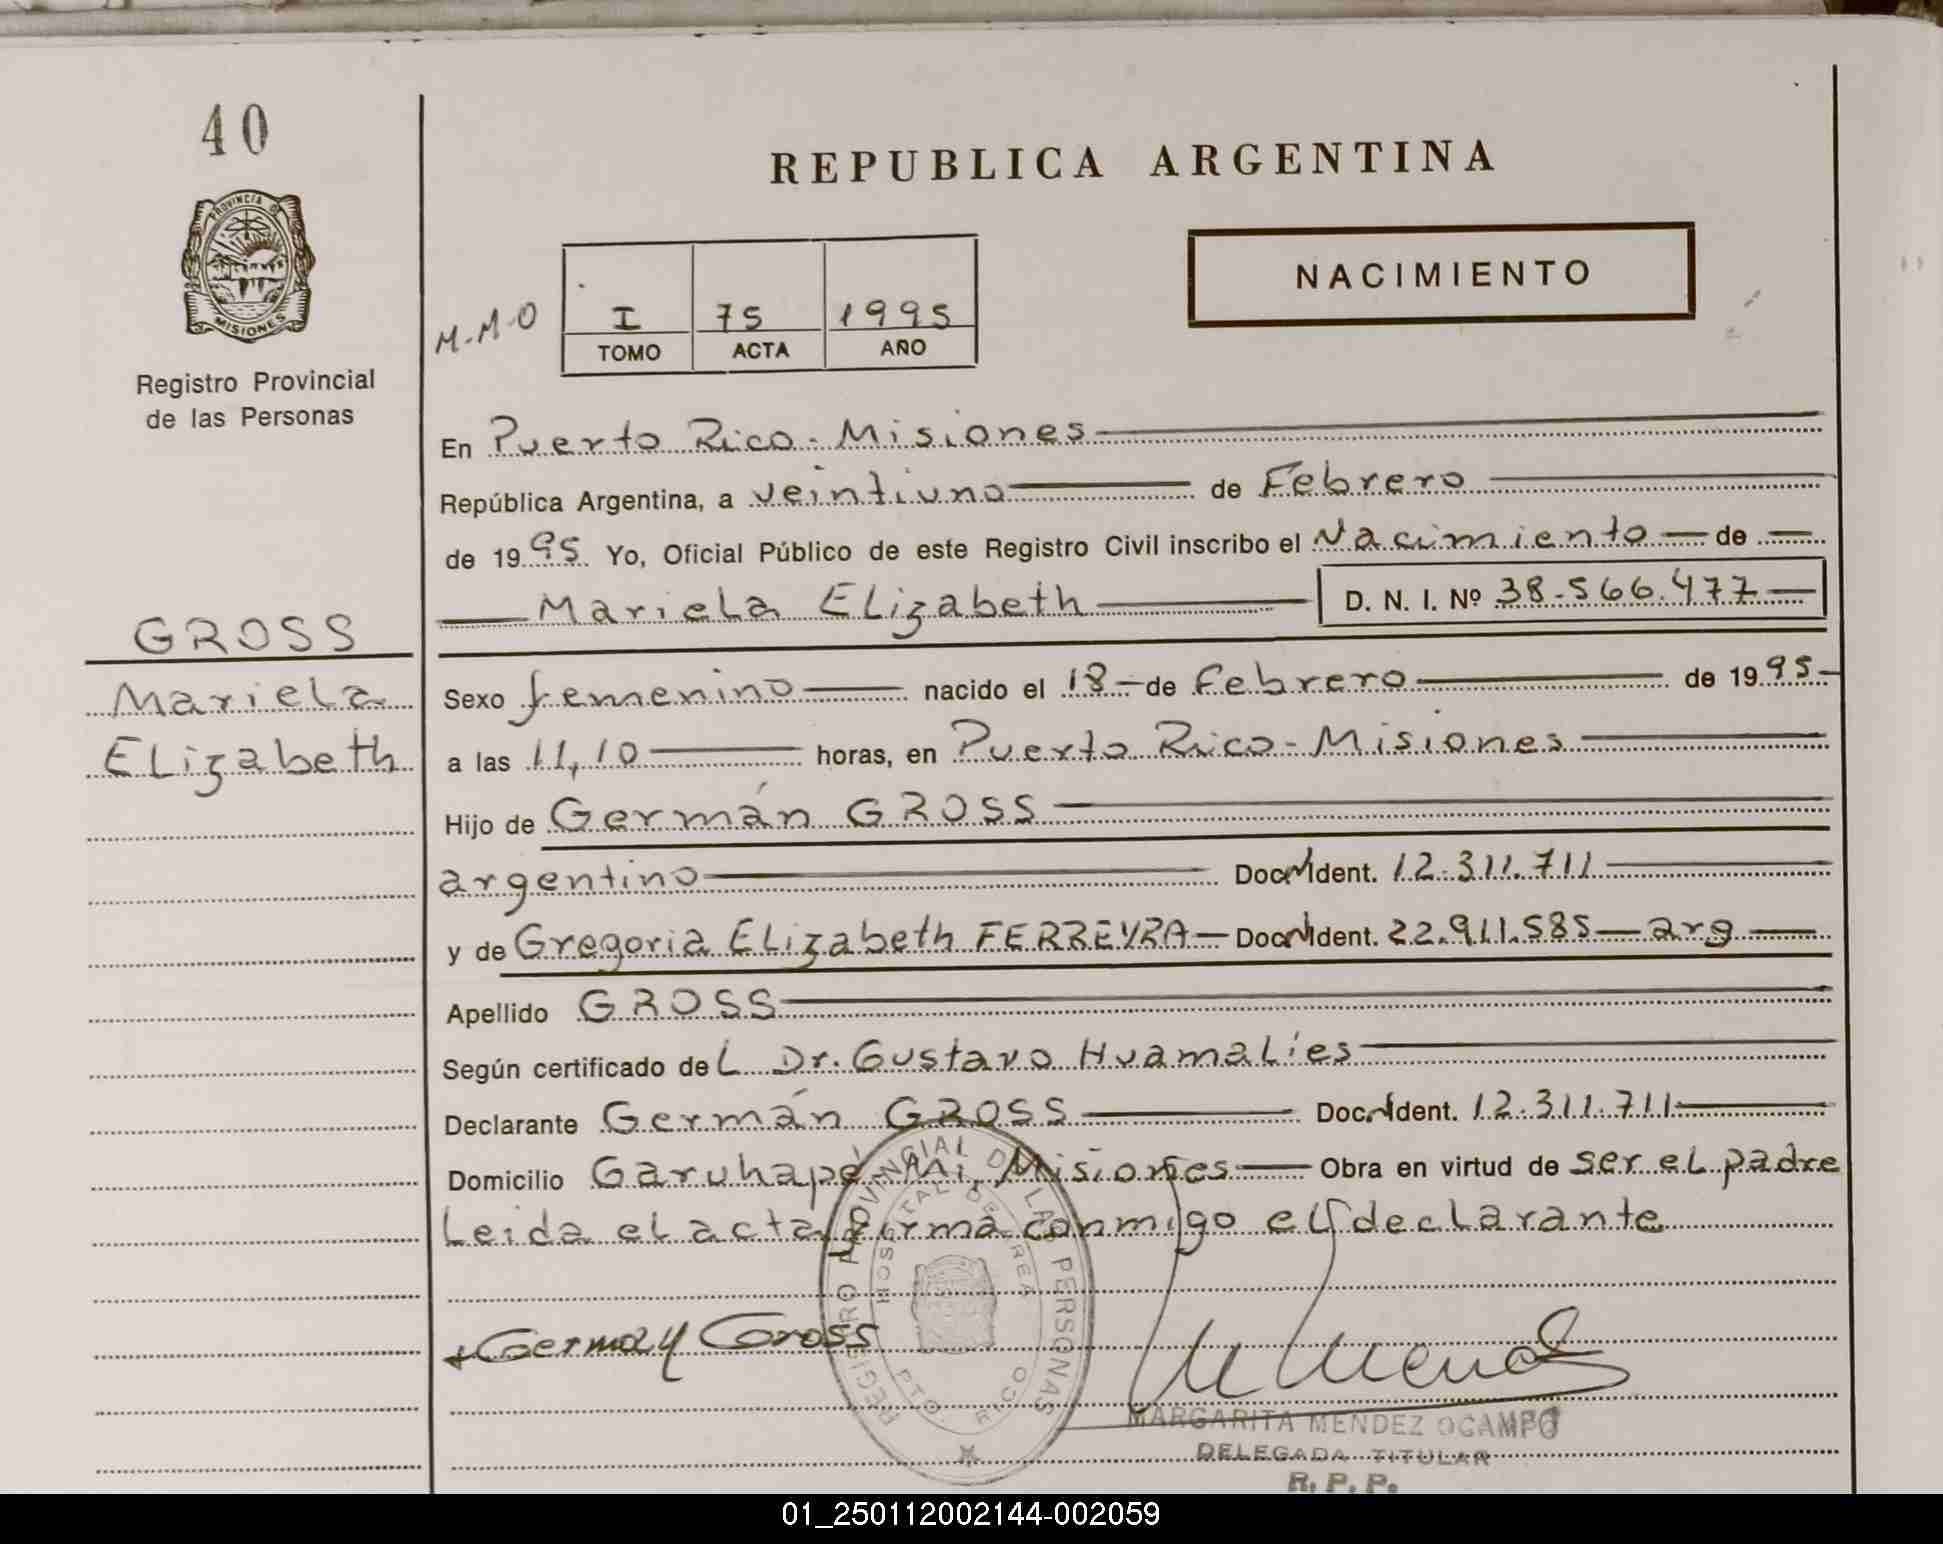 40
PROVINCIA DE
MISIONES
Registro Provincial
de las Personas
GROSS
Mariela
Elizabeth
REPUBLICA ARGENTINA
NACIMIENTO
M.M.O
I 75 1995
TOMO ACTA AÑO
En Puerto Rico - Misiones
República Argentina, a veintiuno de Febrero
de 1995 Yo, Oficial Público de este Registro Civil inscribo el Nacimiento de
Mariela Elizabeth D. N. I. Nº 38.566.477
Sexo femenino nacido el 18 de Febrero de 1995
a las 11,10 horas, en Puerto Rico - Misiones
Hijo de Germán GROSS
argentino Doc. Ident. 12.311.711
y de Gregoria Elizabeth FERREYRA Doc. Ident. 22.911.585 arg
Apellido GROSS
Según certificado del Dr. Gustavo Huamalíes
Declarante Germán GROSS Doc. Ident. 12.311.711
Domicilio Garuhapé - Mi, Misiones Obra en virtud de ser el padre
Leida el acta firma conmigo el declarante
German Gross
REGISTRO PROVINCIAL DE LAS PERSONAS
HOSPITAL DE AREA
PTO. RICO
MARGARITA MENDEZ OCAMPO
DELEGADA TITULAR
R. P. P.
01_250112002144-002059